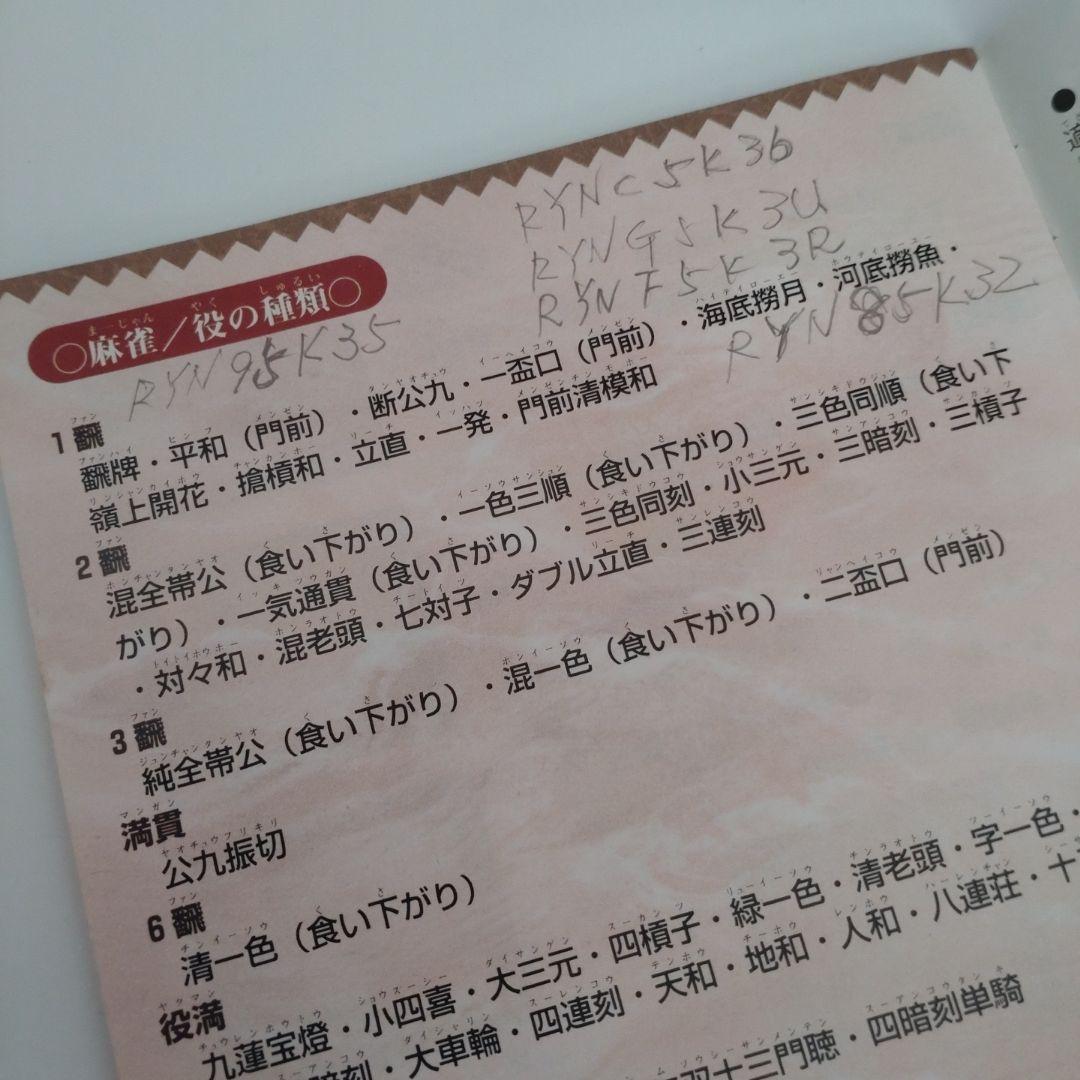 RYNC5K36
RYNG5K3U
RYNF5K3R
RYN85K32
○麻雀／役の種類○
RYN95K35
1飜
飜牌・平和（門前）・断公九・一盃口（門前）・海底撈月・河底撈魚・
嶺上開花・搶槓和・立直・一発・門前清模和
2飜
混全帯公（食い下がり）・一色三順（食い下がり）・三色同順（食い下
がり）・一気通貫（食い下がり）・三色同刻・小三元・三暗刻・三槓子
・対々和・混老頭・七対子・ダブル立直・三連刻
3飜
純全帯公（食い下がり）・混一色（食い下がり）・二盃口（門前）
満貫
公九振切
6飜
清一色（食い下がり）
役満
九蓮宝燈・小四喜・大三元・四槓子・緑一色・清老頭・字一色・
暗刻・大車輪・四連刻・天和・地和・人和・八連荘・十
十三門聴・四暗刻単騎